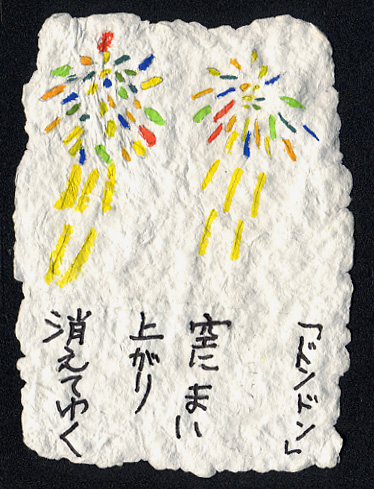 「ドンドン」
空にまい
上がり
消えてゆく